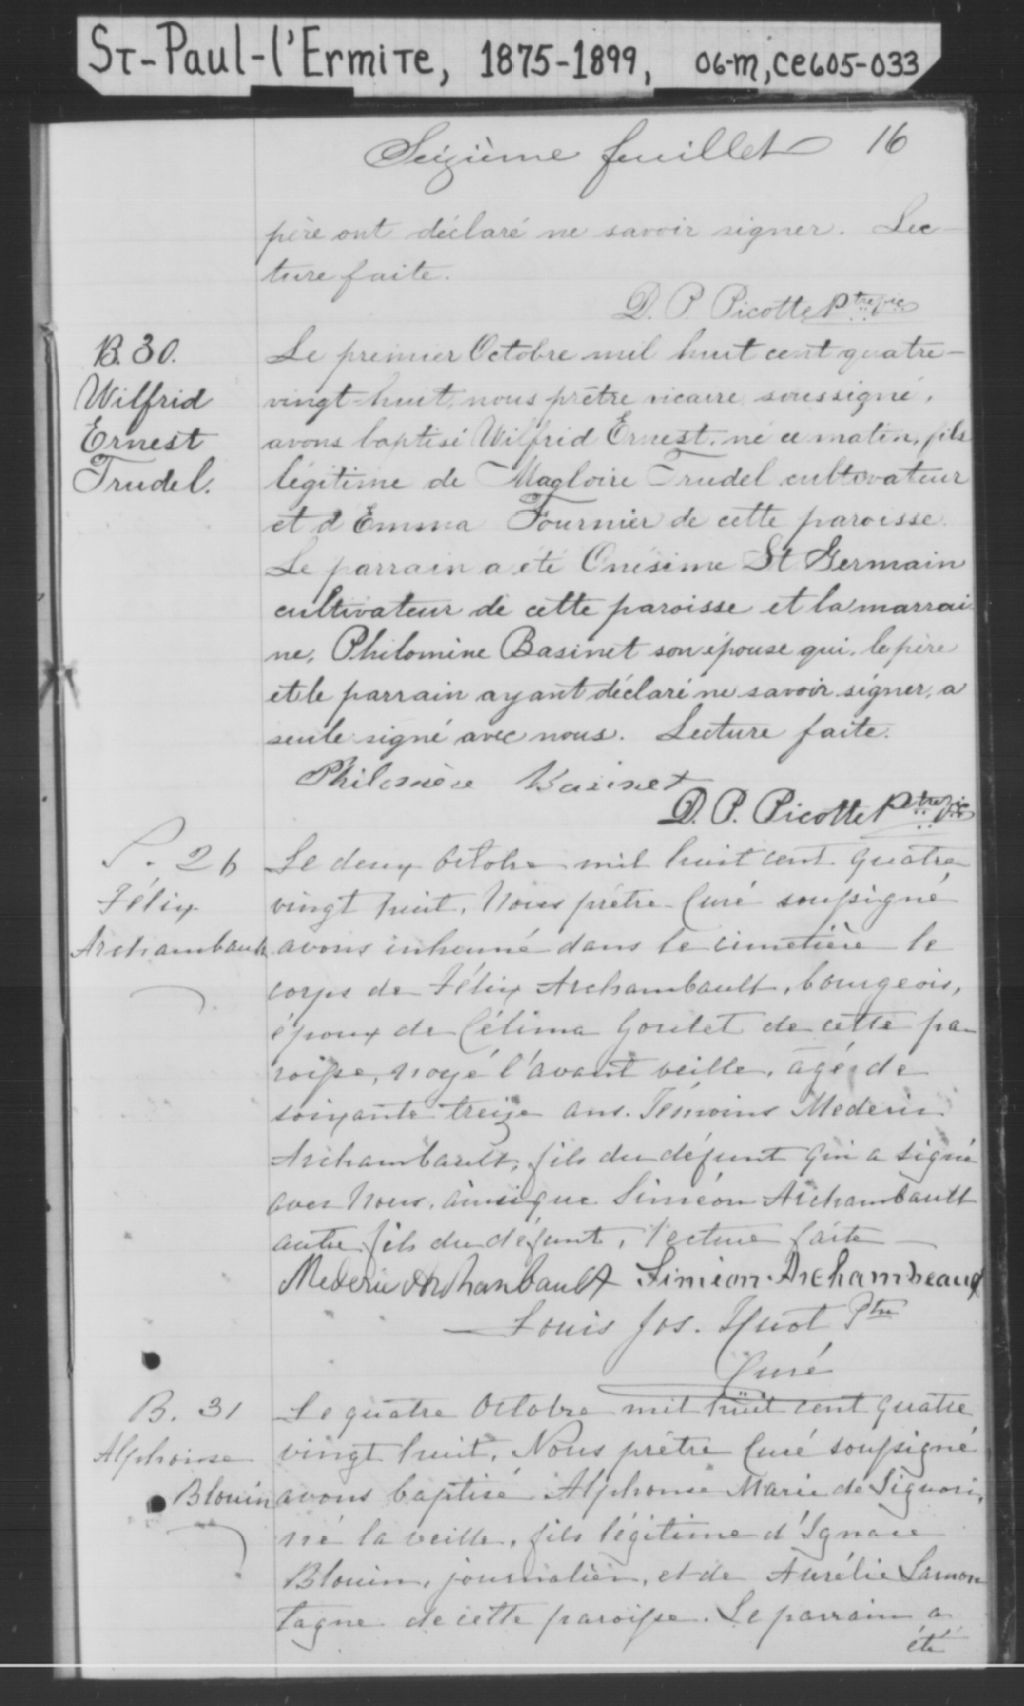 St-Paul-l'Ermite, 1875-1899, 06-m, ce605-033
Seizième feuillet 16
père ont déclaré ne savoir signer. Lec-
ture faite.
D. P. Picotte Ptre vic
B. 30.
Wilfrid
Ernest
Trudel.
Le premier Octobre mil huit cent quatre-
vingt-huit, nous prêtre vicaire soussigné,
avons baptisé Wilfrid Ernest, né ce matin, fils
légitime de Magloire Trudel cultivateur
et d'Emma Fournier de cette paroisse.
Le parrain a été Onésime St Germain
cultivateur de cette paroisse et la marrai
ne, Philomine Basinet son épouse qui, le père
et le parrain ayant déclaré ne savoir signer, a
seule signé avec nous. Lecture faite.
Philomène Basinet
D. P. Picotte Ptre vic
S. 26
Félix
Archambault
Le deux Octobre mil huit cent quatre
vingt huit, Nous prêtre Curé soussigné
avons inhumé dans le cimetière le
corps de Félix Archambault, bourgeois,
époux de Célima Goulet de cette pa
roisse, noyé l'avant veille, âgé de
soixante treize ans. Témoins Mederic
Archambault, fils du défunt qui a signé
avec Nous, ainsi que Siméon Archambault
autre fils du défunt, lecture faite —
Mederic Archambault Simeon Archambeault
Louis Jos. Huot Ptre
Curé
B. 31
Alphonse
Blouin
Le quatre Octobre mil huit cent quatre
vingt huit, Nous prêtre Curé soussigné
avons baptisé Alphonse Marie de Liguori,
né la veille, fils légitime d'Ignace
Blouin, journalier, et de Aurélie Lamon
tagne de cette paroisse. Le parrain a
été